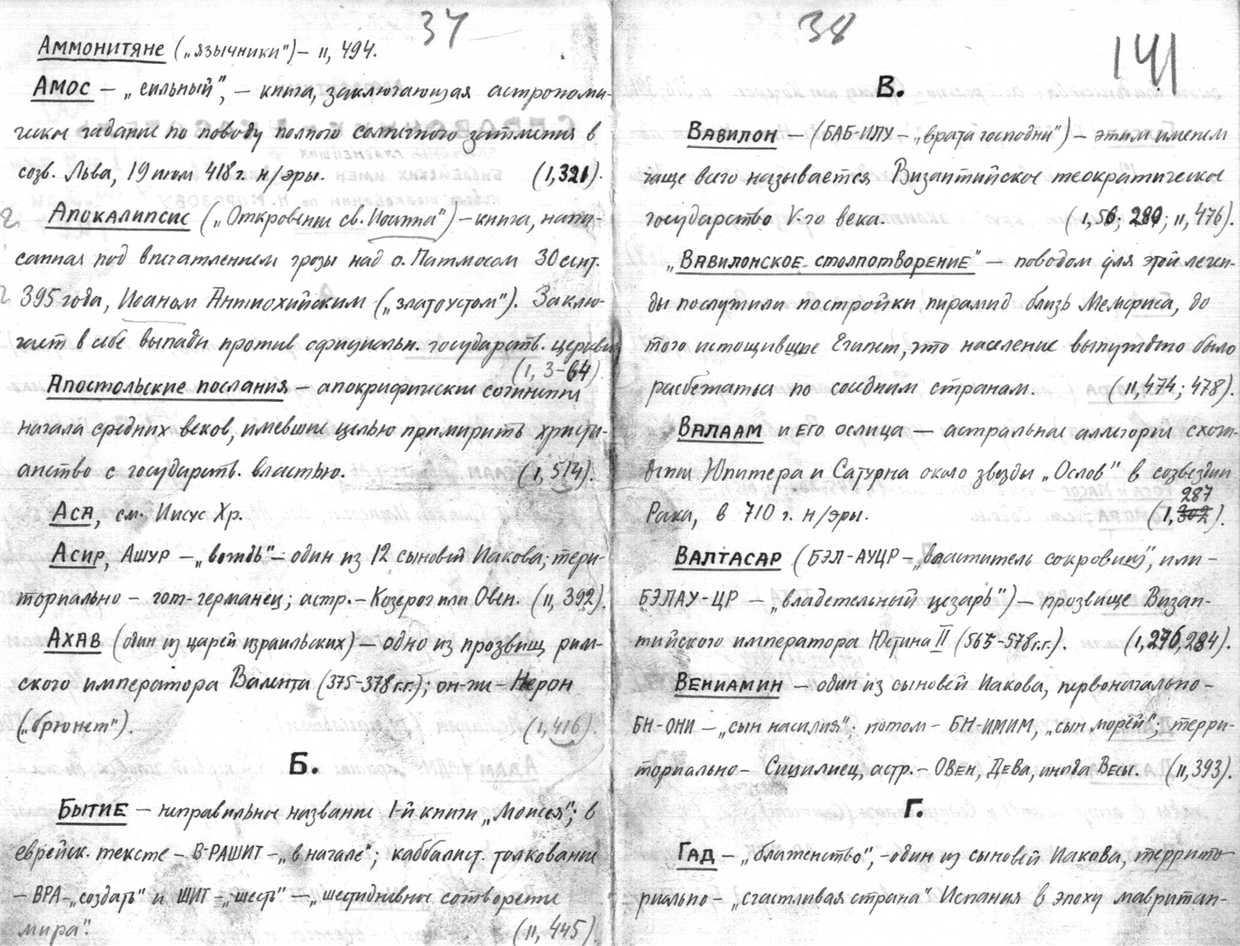 37
Аммонитяне („язычники") – II, 494.
Амос – „сильный", – книга, заключающая астрономи-
ческое гадание по поводу полного солнечного затмения в
созв. Льва, 19 июля 418 г. н/эры. (I, 321).
Апокалипсис („Откровение св. Иоанна") – книга, напи-
санная под впечатлением грозы над о. Патмосом 30 сент.
395 года, Иоаном Антиохийским („златоустом"). Заклю-
чает в себе выпады против официальн. государств. церкви
(I, 3-64).
Апостольские послания – апокрифические сочинения
начала средних веков, имевшие целью примирить христи-
анство с государств. властью. (I, 514).
Аса, см. Иисус Хр.
Асир, Ашур – „вождь" – один из 12 сыновей Иакова; тери-
ториально – гот-германец; астр. – Козерог или Овен. (II, 392).
Ахав (один из царей израильских) – одно из прозвищ рим-
ского императора Валента (375-378 г.г.); он-же – Нерон
(„брюнет"). (I, 416).
Б.
Бытие – неправильное название 1-й книги „Моисея"; в
еврейск. тексте – В-РАШИТ – „в начале"; каббалист. толкование
– ВРА – „создать" и ШИТ – „шесть" – „шестидневное сотворение
мира". (II, 445).
38
141
В.
Вавилон – (БАБ-ИЛУ – „врата господни") – этим именем
чаще всего называется Византийское теократическое
государство V-го века. (I, 56; 280; II, 476).
„Вавилонское столпотворение" – поводом для этой леген-
ды послужили постройки пирамид близь Мемфиса, до
того истощившие Египет, что население вынуждено было
разбегаться по соседним странам. (II, 474; 478).
Валаам и его ослица – астральные аллегории схож-
дения Юпитера и Сатурна около звезды „Ослов" в созвездии
287
Рака, в 710 г. н/эры. (I, 302).
Валтасар (БЭЛ-АУЦР – „властитель сокровищ", или –
БЭЛАУ-ЦР – „владетельный цезарь") – прозвище Визан-
тийского императора Юстина II (565-578 г.г.). (I, 276, 284).
Вениамин – один из сыновей Иакова, первоначально –
БН-ОНИ – „сын насилия"; потом – БН-ИМИМ, „сын морей"; терри-
ториально – Сицилиец, астр. – Овен, Дева, иногда Весы. (II, 393).
Г.
Гад – „блаженство", – один из сыновей Иакова, террито-
риально – „счастливая страна" Испания в эпоху мавритан-